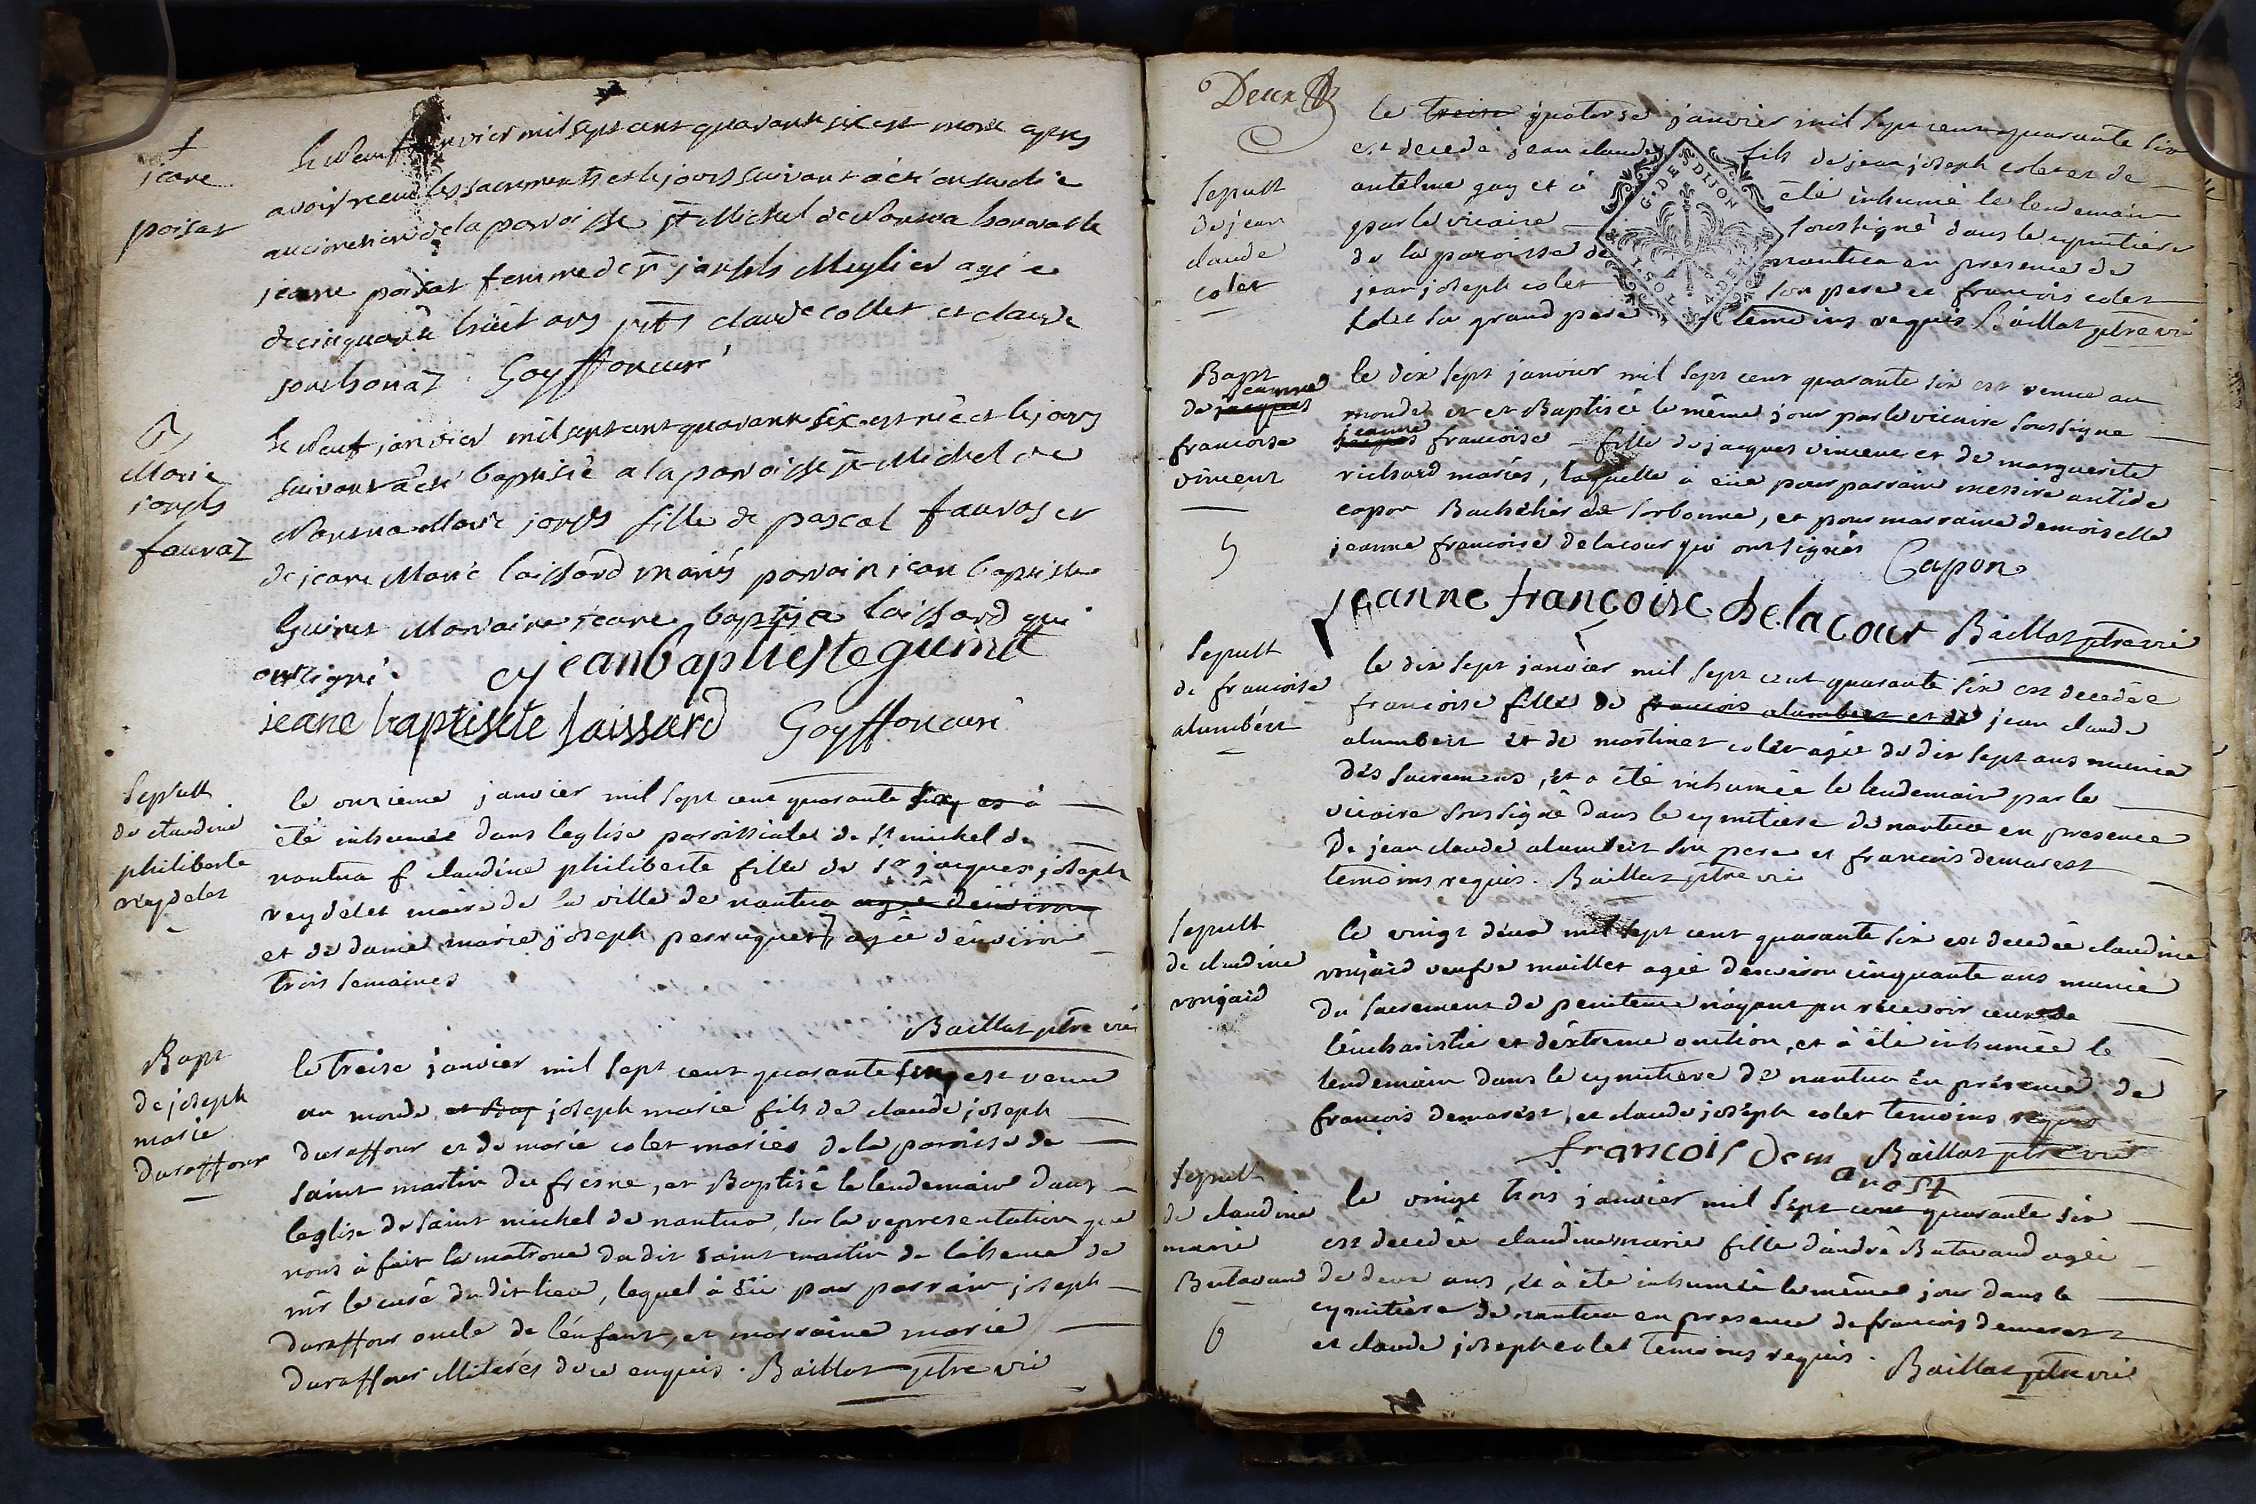 †
jeane
poisat
le neuf janvier mil sept cent quarante six est morte apres
avoir receu les sacrements et le jours suivant a été ensevelie
au cimetiere de la paroisse st Michel de Nantua honorable
jeane poisat femme de sr joseph Meylier agée
de cinquante huit ans pnts claude collet et claude
jouchonaz. Goyffon curé
B
Marie
joseph
fauraz
le neuf janvier mil sept cent quarante six est née et le jours
suivant a été baptisée a la paroisse st Michel de
Nantua Marie joseph fille de pascal fauraz et
de jeane Marie laissard mariés parrain jean baptiste
Guinet Maraine jeane baptiste laissard qui
ont signé.
jeanbaptiste guinet
jeane baptiste laissard Goyffon curé
Sepult
de claudine
philiberte
reydelet
le onzieme janvier mil sept cent quarante six a
été inhumée dans leglise paroissiale de st michel de
nantua f claudine philiberte fille de sr jacques joseph
reydelet maire de la ville de nantua agée denviron
et de dame marie joseph perruquet, agée d'environ
trois semaines
Baillat ptre vic
Bapt
de joseph
marie
Duraffour
le treise janvier mil sept cent quarante six est venu
au monde et Bap joseph marie fils de claude joseph
duraffour et de marie colet mariés de la paroisse de
saint martin du fresne, et Baptisé le lendemain dans
leglise de saint michel de nantua, sur la representation que
nous à fait la matrone dudit saint martin de l'absence de
mr le curé dudit lieu, lequel à eü pour parrain joseph
duraffour oncle de l'enfant, et marraine marie
duraffour illiterés de ce enquis. Baillat ptre vic
Deux
Sepult
de jean
claude
colet
le treise quatorse janvier mil sept cent quarante six
est decedé jean claude fils de jean joseph colet et de
antelme guy et à été inhumé le lendemain
par le vicaire soussigné dans le cymitiere
de la paroisse de nantua en presence de
jean joseph colet son pere et françois colet
colet son grand pere temoins requis Baillat ptre vic
G. DE DIJON
Bapt
jeanne
de jacques
francoise
vincent
5
le dix sept janvier mil sept cent quarante six est venue au
monde et et Baptisée le même jour par le vicaire soussigné
jeanne
jacques francoise fille de jacques vincent et de marguerite
richard mariés, laquelle à eüe pour parrain messire antide
capon Bachelier de sorbonne, et pour marraine demoiselle
jeanne francoise delacour qui ont signés Capon
jeanne françoise delacour Baillat ptre vic
Sepult
de francoise
alumbért
le dix sept janvier mil sept cent quarante six est decedée
francoise fille de francois alumbert et de jean claude
alumbert et de martinet colet agée de dix sept ans munie
des sacremens, et a été inhumée le lendemain par le
vicaire soussigné dans le cymitiere de nantua en presence
De jean claude alumbert son pere et francois demarest
temoins requis. Baillat ptre vic
Sepult
de claudine
le vingt deux mil sept cent quarante six est decedée claudine
veufve maillet agée denviron cinquante ans munie
du sacrement de penitence n'ayant pu recevoir
l'eucharistie et d'éxtreme onction, et à été inhumée le
lendemain dans le cymitiere de nantua en présence de
françois demarést, et claude joséph colet temoins requis
francois demarest Baillat ptre vic
Sepult
de claudine
marie
Butavand
6
le vingt trois janvier mil sept cent quarante six
est decedée claudine marie fille d'andré Butavand agée
de deux ans, et à été inhumée le même jour dans le
cymitiere de nantua en presence de francois demarest
et claude joseph colet temoins requis. Baillat ptre vic